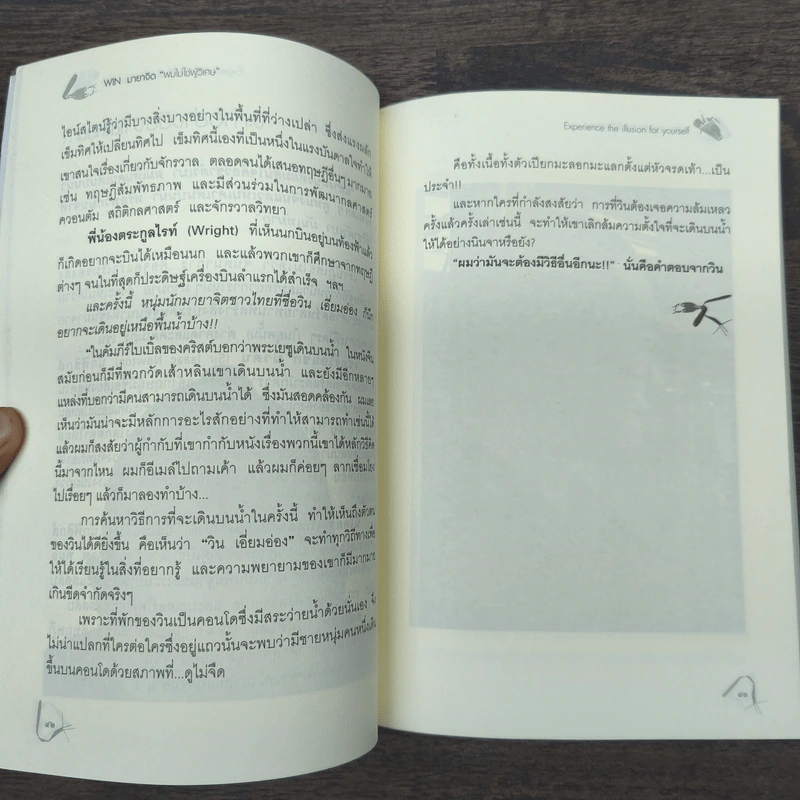 WIN มายาจิต "ผมไม่ใช่ผู้วิเศษ"
ไอน์สไตน์รู้ว่ามีบางสิ่งบางอย่างในพื้นที่ที่ว่างเปล่า ซึ่งส่งแรงผลัก
เข็มทิศให้เปลี่ยนทิศไป เข็มทิศนี้เองที่เป็นหนึ่งในแรงบันดาลใจทำให้
เขาสนใจเรื่องเกี่ยวกับจักรวาล ตลอดจนได้เสนอทฤษฎีอื่นๆ มากมาย
เช่น ทฤษฎีสัมพัทธภาพ และมีส่วนร่วมในการพัฒนากลศาสตร์
ควอนตัม สถิติกลศาสตร์ และจักรวาลวิทยา
พี่น้องตระกูลไรท์ (Wright) ที่เห็นนกบินอยู่บนท้องฟ้าแล้ว
ก็เกิดอยากจะบินได้เหมือนนก และแล้วพวกเขาก็ศึกษาจากทฤษฎี
ต่างๆ จนในที่สุดก็ประดิษฐ์เครื่องบินลำแรกได้สำเร็จ ฯลฯ
และครั้งนี้ หนุ่มนักมายาจิตชาวไทยที่ชื่อวิน เอี่ยมอ่อง ก็นึก
อยากจะเดินอยู่เหนือพื้นน้ำบ้าง!!
"ในคัมภีร์ไบเบิ้ลของคริสต์บอกว่าพระเยซูเดินบนน้ำ ในหนังจีน
สมัยก่อนก็มีที่พวกวัดเส้าหลินเขาเดินบนน้ำ และยังมีอีกหลายๆ
แหล่งที่บอกว่ามีคนสามารถเดินบนน้ำได้ ซึ่งมันสอดคล้องกัน ผมเลย
เห็นว่ามันน่าจะมีหลักการอะไรสักอย่างที่ทำให้สามารถทำเช่นนี้ได้
แล้วผมก็สงสัยว่าผู้กำกับที่เขากำกับหนังเรื่องพวกนี้เขาได้หลักวิธีคิด
นี้มาจากไหน ผมก็อีเมล์ไปถามเค้า แล้วผมก็ค่อยๆ ลากเชื่อมโยง
ไปเรื่อยๆ แล้วก็มาลองทำบ้าง...
การค้นหาวิธีการที่จะเดินบนน้ำในครั้งนี้ ทำให้เห็นถึงตัวตน
ของวินได้ดียิ่งขึ้น คือเห็นว่า "วิน เอี่ยมอ่อง" จะทำทุกวิถีทางเพื่อ
ให้ได้เรียนรู้ในสิ่งที่อยากรู้ และความพยายามของเขาก็มีมากมาย
เกินขีดจำกัดจริงๆ
เพราะที่พักของวินเป็นคอนโดซึ่งมีสระว่ายน้ำด้วยนั่นเอง จึง
ไม่น่าแปลกที่ใครต่อใครซึ่งอยู่แถวนั้นจะพบว่ามีชายหนุ่มคนหนึ่งเดิน
ขึ้นบนคอนโดด้วยสภาพที่...ดูไม่จืด
๔๒
Experience the illusion for yourself
คือทั้งเนื้อทั้งตัวเปียกมะลอกมะแลกตั้งแต่หัวจรดเท้า...เป็น
ประจำ!!
และหากใครที่กำลังสงสัยว่า การที่วินต้องเจอความล้มเหลว
ครั้งแล้วครั้งเล่าเช่นนี้ จะทำให้เขาเลิกล้มความตั้งใจที่จะเดินบนน้ำ
ให้ได้อย่างนินจาหรือยัง?
"ผมว่ามันจะต้องมีวิธีอื่นอีกนะ!!" นั่นคือคำตอบจากวิน